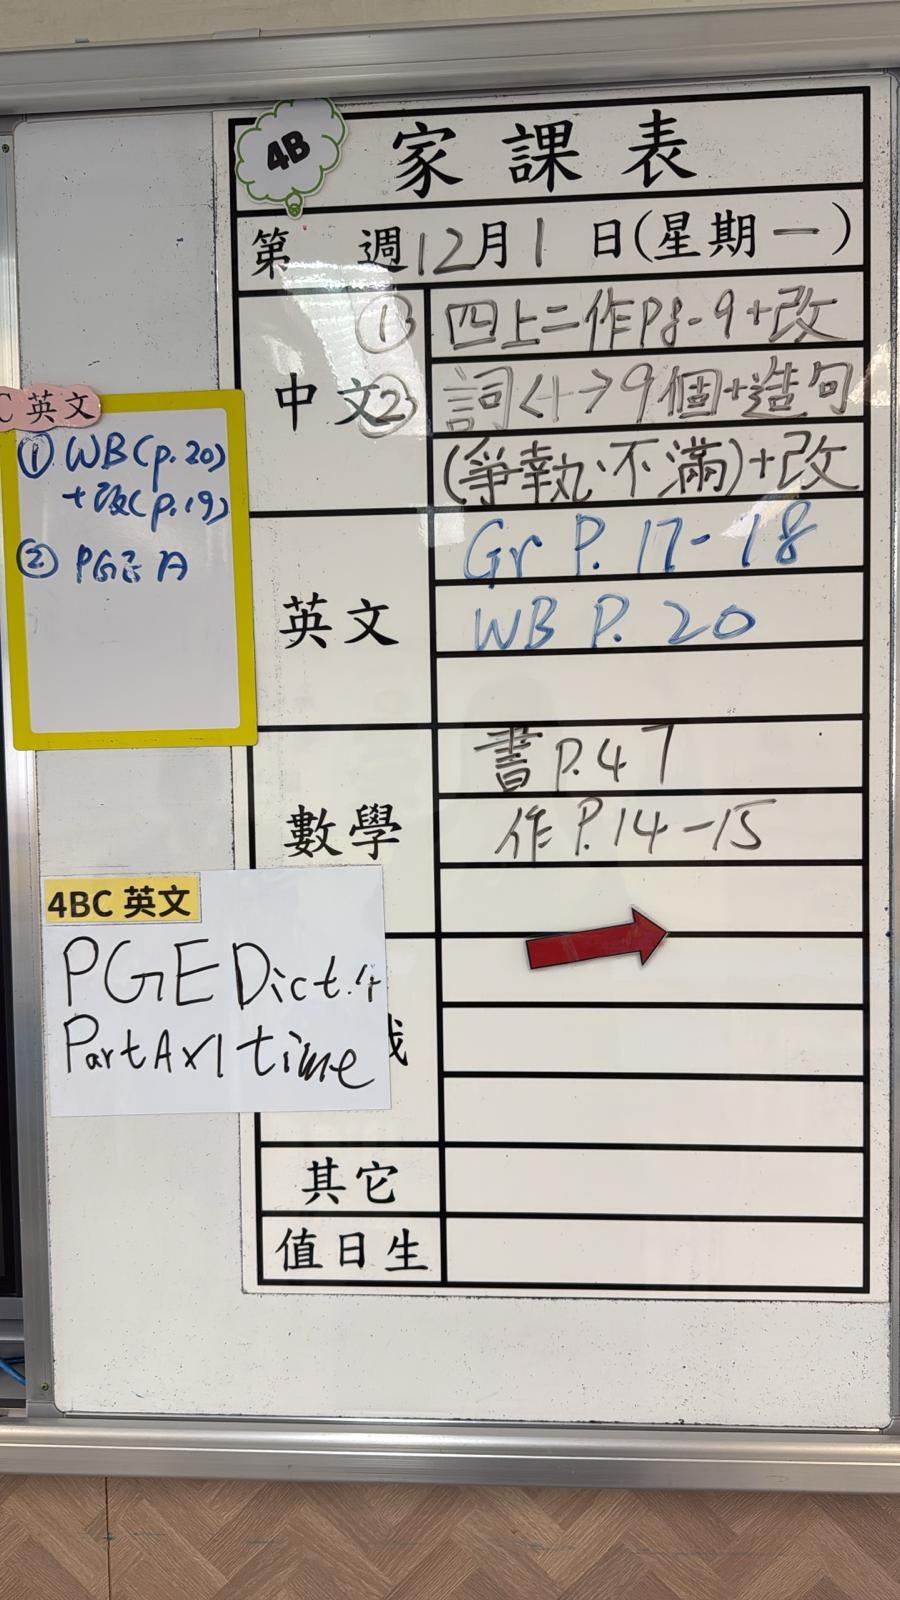 4B
家課表
第 週12月1日(星期一)
中文
① 四上二作P8-9+改
② 詞<+>9個+造句
(爭執、不滿)+改
英文
Gr P. 17-18
WB P. 20
數學
書 P.47
作 P.14-15
其它
值日生
C 英文
① WB(p.20)
+改(p.19)
② PGE A
4BC 英文
PGE Dict.4
Part A x1 time